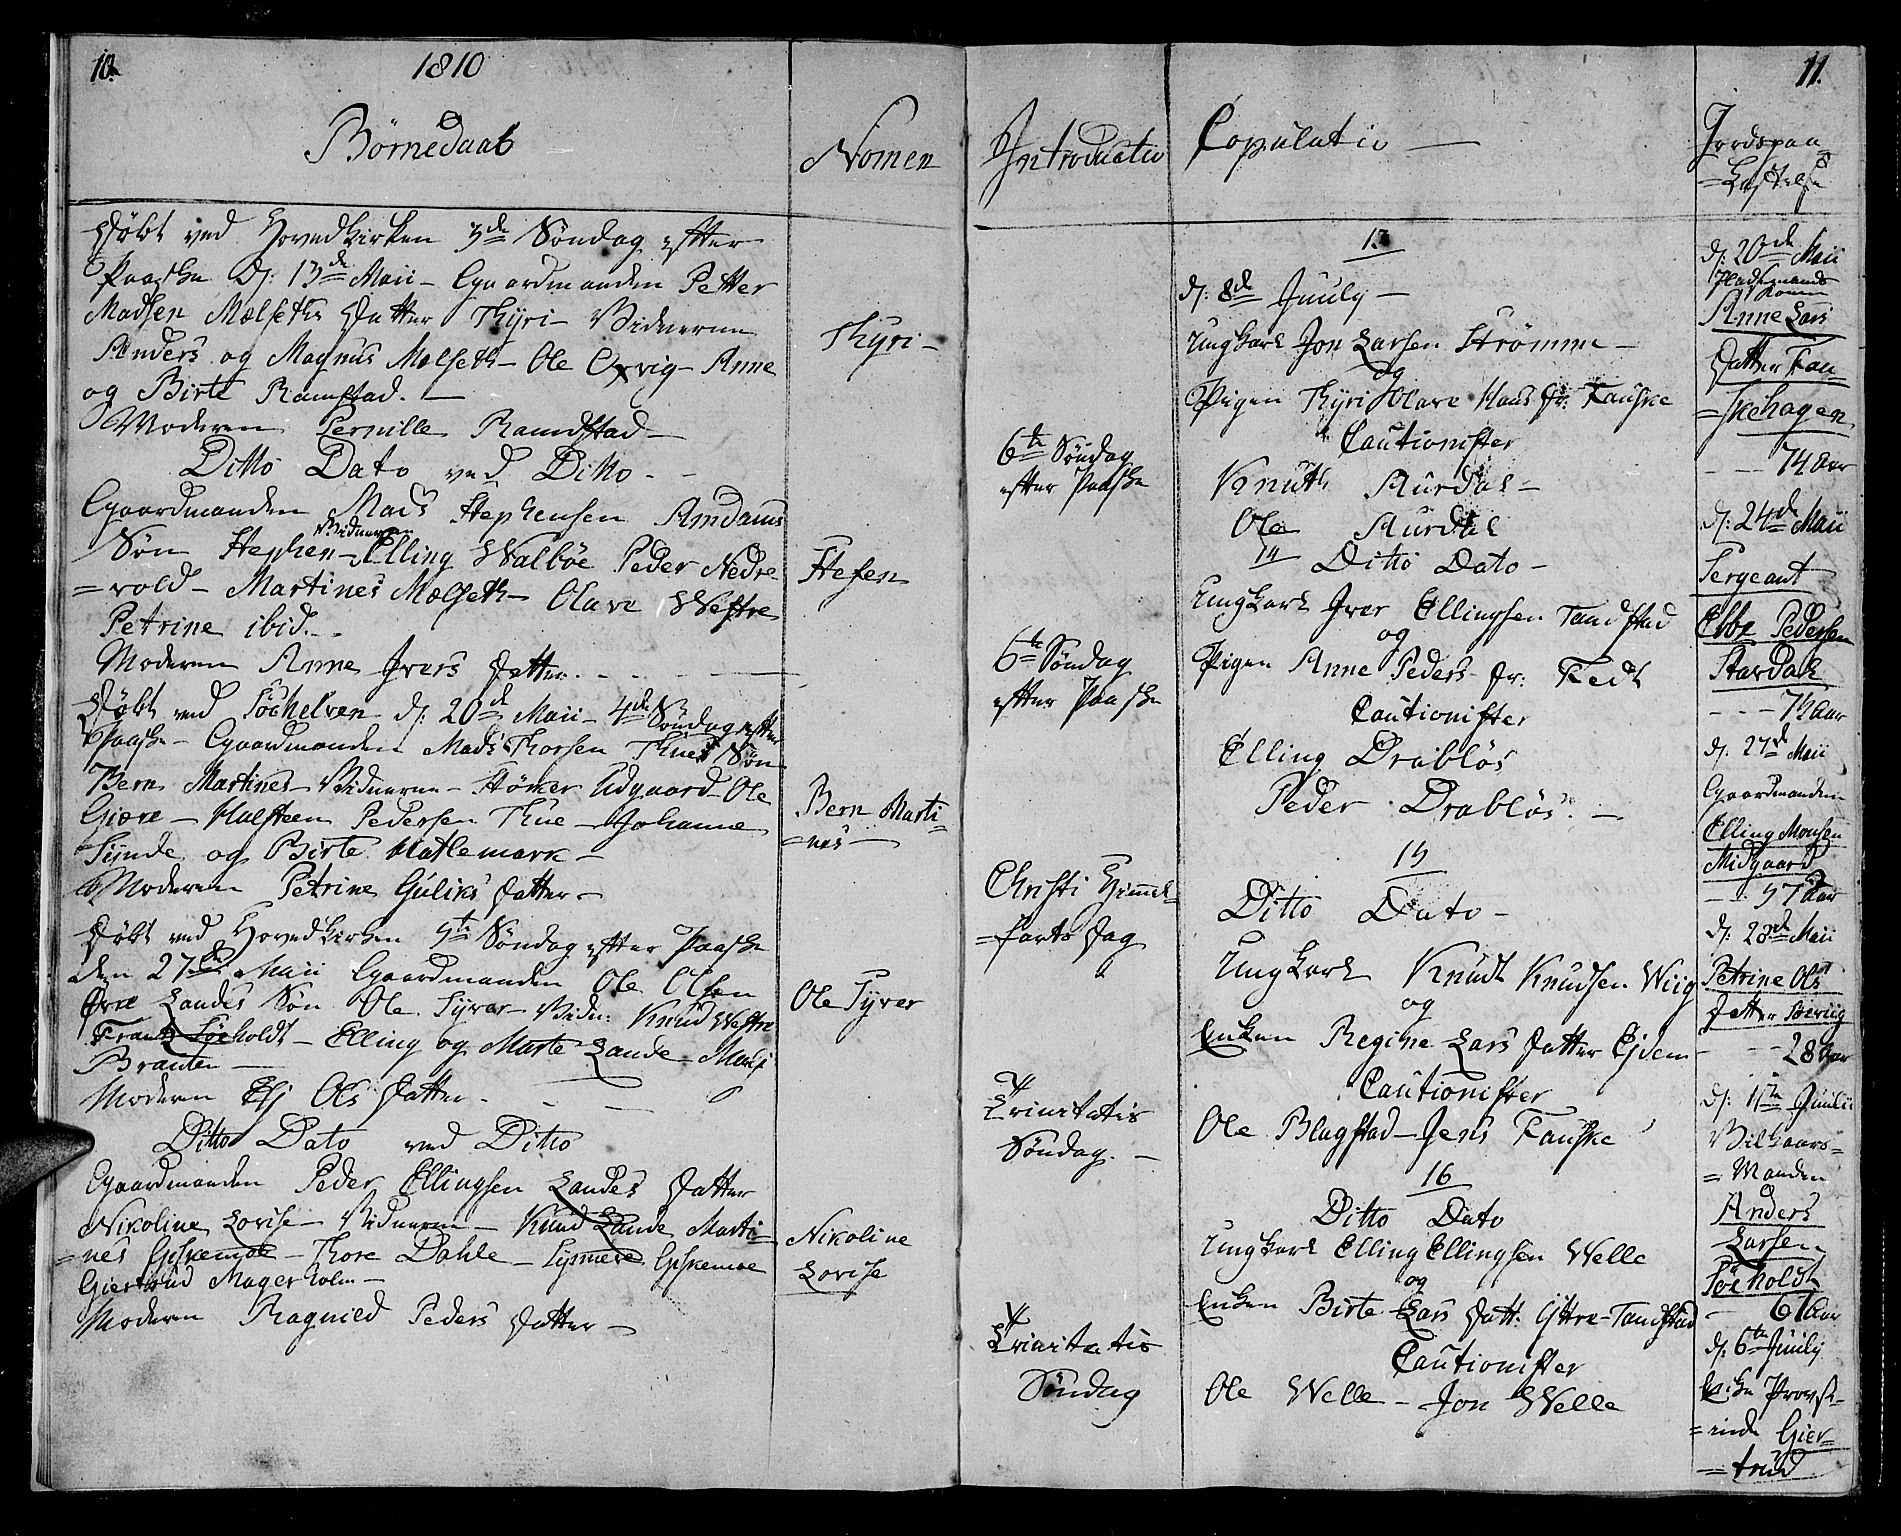 10.
1810
Börnedaab
Nomen
Döbt ved Hovedkirken 3de Söndag efter
Paaske d: 13de Maii - Gaardmanden Petter
Madsen Mælseths Datter Thÿri - Vidnerne
Anders og Magnus Mælseth - Ole Oxvig - Anne
og Birte Ramstad. -
Moderen Pernille Ramdstad -
Thÿri -
Ditto Dato ved Ditto -
Gaardmanden Mads Stephensen Amdams
Søn Stephen - Vidnerne Elling Walböe Peder Nedre
=vold - Martines Mælseth - Olave Westre
Petrine ibid. -
Moderen Anne Ivers Datter
Stefen
Döbt ved Söchelven d: 20de Maii - 4de Söndag efter
Paaske - Gaardmanden Mads Thorsen Thues Søn
Bern Martines - Vidnerne - Udgaard - Ole
Giære - Halsteen Pedersen Thue - Johanne
Sÿnde og Birte Hatlemark -
Moderen Petrine Guliks Datter -
Bern Marti
=nes -
Döbt ved Hovedkirken 5te Söndag efter Paaske
den 27de Maii Gaardmanden Ole Olsen
Øvre Landes Søn Ole Sÿver - Vidn: Knud Westre
Frantz Söeholdt - Elling og Marte Lande -
Branten -
Moderen Elj Ols Datter -
Ole Sÿver
Ditto Dato ved Ditto
Gaardmanden Peder Ellingsen Landes Datter
Nikoline Lovise - Vidnerne - Knud Lande Marti=
=nes Giskemoe - Thore Dahle - Giskemoe
Giertrud Magerholm -
Moderen Ragnild Peders Datter -
Nikoline
Lovise
Introductio
6te Söndag
efter Paaske
6te Söndag
efter Paaske
Christi Himmel
=farts Dag
Trinitatis
Söndag. -
Trinitatis
Söndag
Copulatio -
13
d: 8de Juuly -
Ungkarl Jon Larsen Strömme -
og
Pigen Thÿri Olave Hans Dr: Fauske
Cautionister
Knuth Aurdal -
Ole Aurdal
14 Ditto Dato -
Ungkarl Iver Ellingsen Tandstad
og
Pigen Anne Peders Dr: Fedt
Cautionister
Elling Drablös
Peder Drablös. -
15
Ditto Dato -
Ungkarl Knudt Knudsen Wiig
og
Enken Regine Lars Datter Ejdem
Cautionister
Ole Blagstad - Jens Fauske
16
Ditto Dato
Ungkarl Elling Ellingsen Welle
og
Enken Birte Lars Datt: Ÿttre-Tandstad
Cautionister
Ole Welle - Jon Welle
11.
Jordspaa
=kastelse
d: 20de Maii
Pladsemands
Konen
Anne Lars
Datter Fau=
=skehagen
74 Aar
d: 24de Maii
Sergeant
Ebbe Pedersen
Stavdal
Aar
d: 27de Maii
Gaardmanden
Elling Monsen
Midgaard
57 Aar
d: 28de Maii
Petrine Ols
Datter
28 Aar
d: Juulii
Vilkaars=
=Manden
Anders
Larsen
Söeholdt
61 Aar
d: 6te Juuly
Enke Provst=
=inde Gier=
=trud